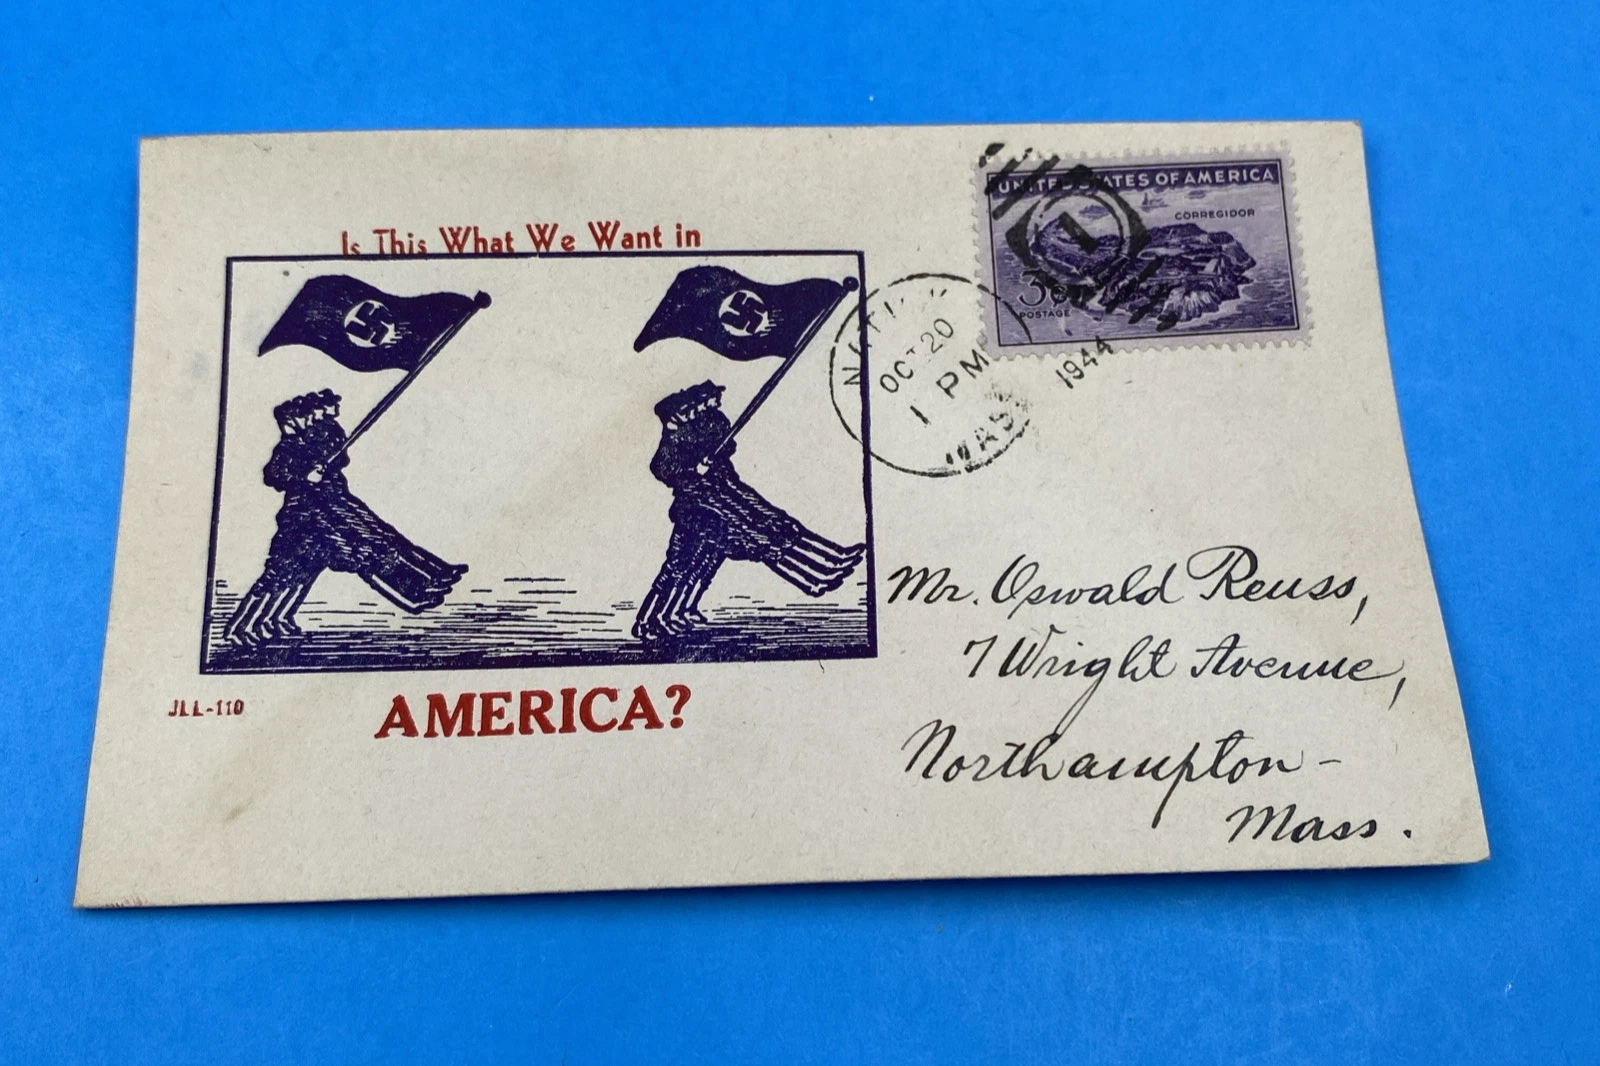 Is This What We Want in
AMERICA?
JLL-110
UNITED STATES OF AMERICA
CORREGIDOR
3¢
POSTAGE
1
OCT 20
1 PM
MASS
1944
Mr. Oswald Reuss,
7 Wright Avenue,
Northampton-
Mass.